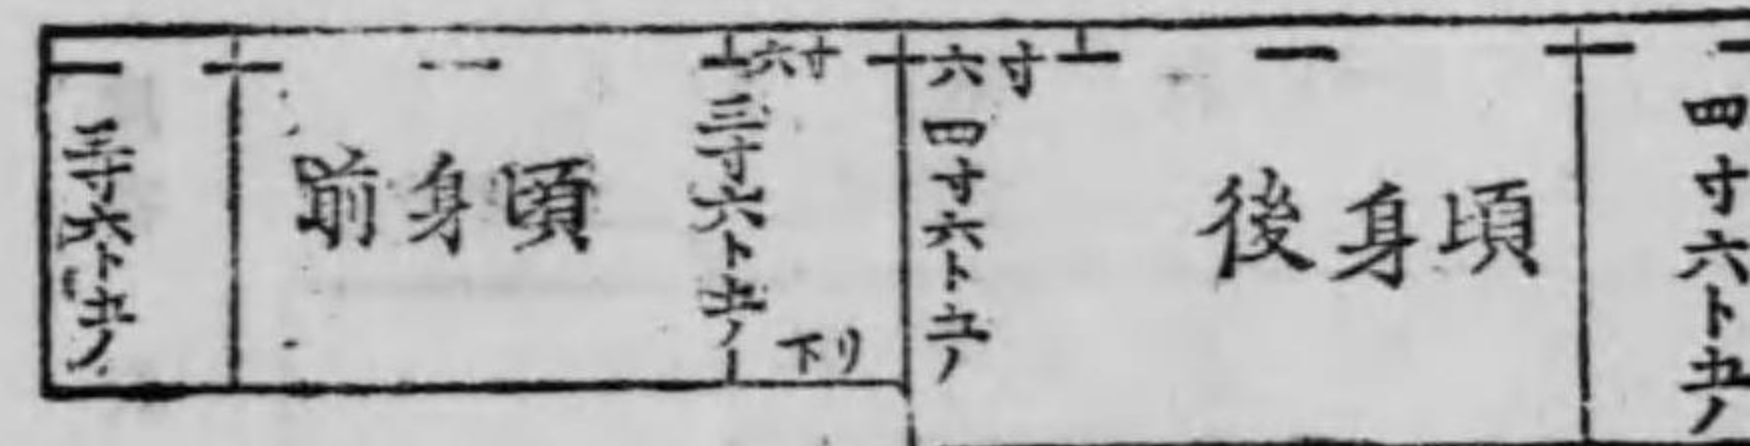 三寸六ト五ノ
前身頃
六寸
三寸六ト五ノ
下リ
六寸
四寸六ト五ノ
後身頃
四寸六ト五ノ